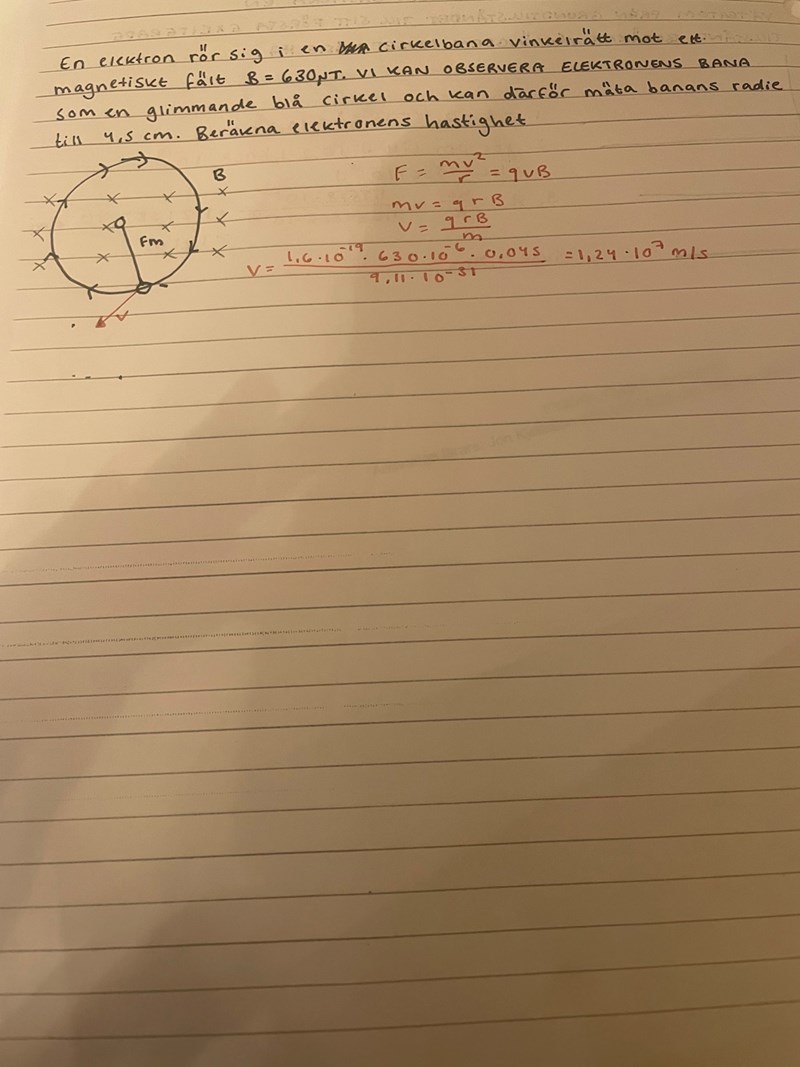 En elektron rör sig i en cirkelbana vinkelrätt mot ett
magnetiskt fält B = 630µT. VI KAN OBSERVERA ELEKTRONENS BANA
som en glimmande blå cirkel och kan därför mäta banans radie
till 4,5 cm. Beräkna elektronens hastighet
B
Fm
v
F = mv²/r = qvB
mv = qrB
V = qrB/m
V = 1,6·10⁻¹⁹·630·10⁻⁶·0,045/9,11·10⁻³¹ = 1,24·10⁷ m/s